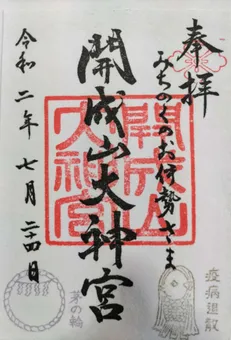 奉拝
みちのくのお伊勢さま
開成山大神宮
令和二年七月二十四日
開成山大神宮
疫病退散
茅の輪